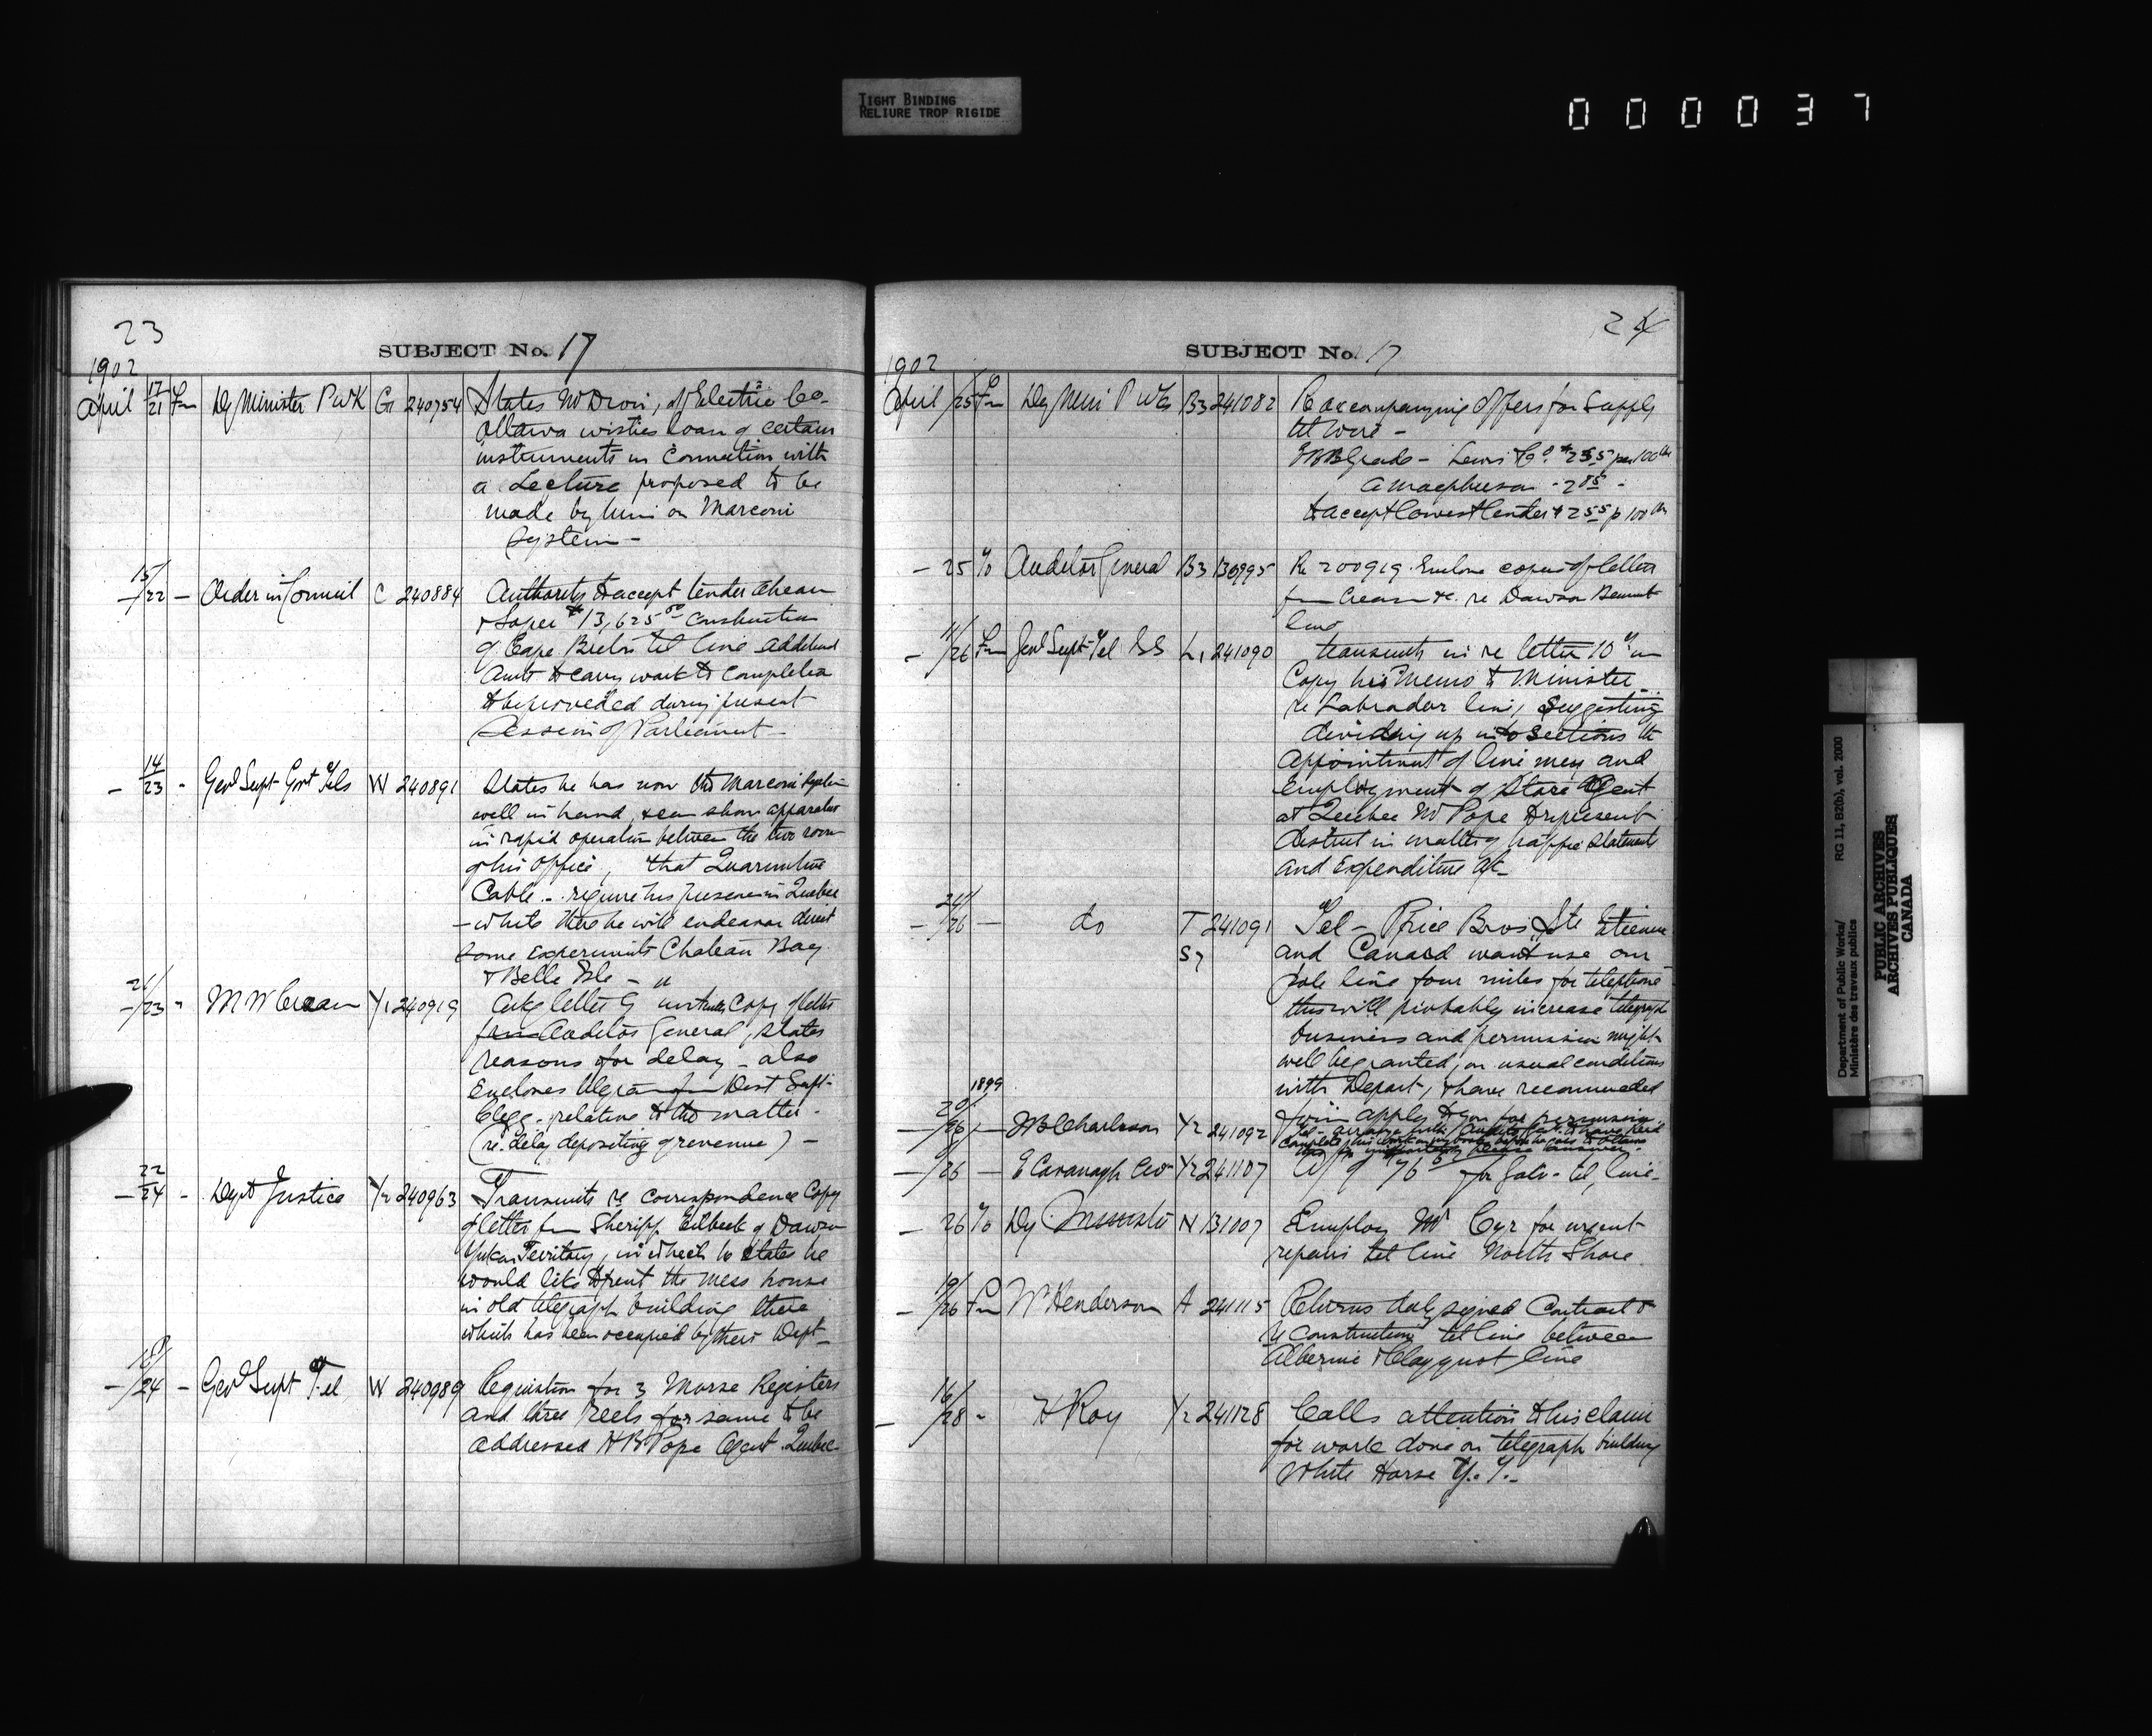 TIGHT BINDING
RELIURE TROP RIGIDE
000037
23
SUBJECT No. 17
1902
April 17/21 Fm Dy Minister P WK G1 240754 States Mr Dion, of Electric Co.
Ottawa wishes loan of certain
instruments in Connection with
a Lecture proposed to be
made by him on Marconi
System -
15/22 - Order in Council C 240884 Authority to accept tender Ahearn
& Soper $13,625.00 Construction
of Cape Breton tel line additional
Amt to carry work to Completion
to be provided during present
Session of Parliament -
- 14/23 - Genl Supt Govt Tels W 240891 States he has now the Marconi System
well in hand, & can show apparatus
in rapid operation between the two rooms
of his office, that Quarantine
Cable - require his presence in Quebec
- while there he will endeavor direct
some experiments Chateau Bay
& Belle Isle -
- 21/23 " M W Crean Y1 240919 Ackg letter G Copy of letter
from Auditor General, states
reasons for delay - also
Encloses telegram fm Dist Supt
Clegg - relative to the matter -
(re delay depositing of revenue) -
- 22/24 - Dept Justice Y2 240963 Transmits re correspondence Copy
of letter fm Sheriff Eilbeck of Dawson
Yukon Territory, in which he states he
would like to rent the mess house
in old telegraph building there
which has been occupied by their Dept -
- 18/24 - Genl Supt Tel W 240989 Requisition for 3 Morse Registers
and three Reels for same to be
addressed H B Pope Agent Quebec
24
SUBJECT No. 17
1902
April /25 Fm Dy Mini P Wks B3 241082 Re accompanying Offers for Supply
tel wire -
Grade - Lewis Co. $2.55 per 100 lbs
A Macpherson - 2.85 -
to accept lowest tender $2.55 p 100 lbs
- 25 To Auditor General B3 130995 Re 200919. Enclose copies of letters
fm Crean &c. re Dawson Bennett
line
- 11/26 Fm Genl Supt Tel SS L1 241090 transmits in re letter 10th
Copy his Memo to Minister
re Labrador line, Suggesting
dividing up into Sections the
Appointment of line men and
Employment of Store Agent
at Quebec Mr Pope to represent
district in matter of traffic statements
and Expenditure &c -
- 24/26 - do T 241091 Tel - Price Bros, Ste Etienne
S7 and Canard want use our
pole line four miles for telephone
this will probably increase telegraph
business and permission might
well be granted, on usual conditions
with Depart, & have recommended
1899
apply to you for permission
- 20/26 - J B Charleson Y2 241092
- /26 - E Cavanagh Y2 241107 of 176 for Galv. tel, line -
- 26 To Dy Minister N 131007 Employ Mr Cyr for urgent
repairs tel line North Shore
- 19/26 Fm W Henderson A 241115 Returns duly signed Contract &
re Construction tel line between
Alberni & Clayquot line
- 16/28 - H Roy Y2 241128 Calls attention to his claim
for work done on telegraph building
White Horse Y. T. -
Department of Public Works/
Ministère des travaux publics
RG 11, B2(b), vol. 2000
PUBLIC ARCHIVES
ARCHIVES PUBLIQUES
CANADA